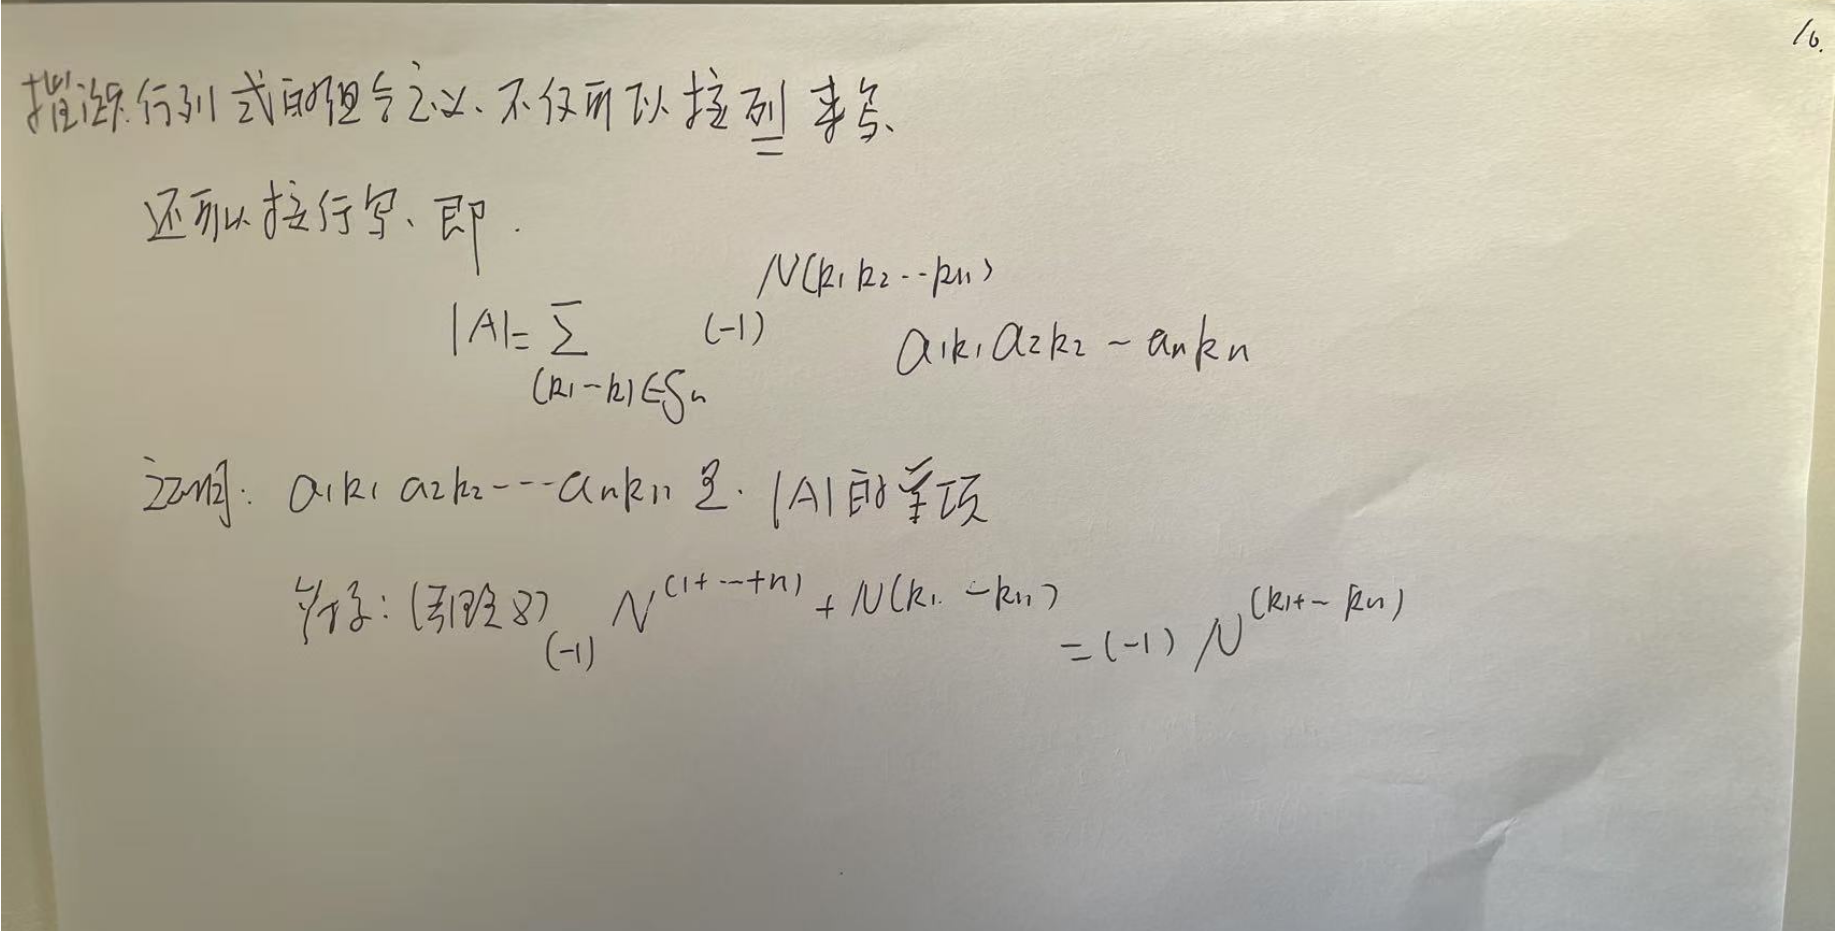 16.
推论: 行列式的组合定义、不仅可以按列来写、
还可以按行写、即.
|A|= Σ_{(k1-k)∈Sn} (-1)^{N(k1 k2 ··· kn)} a1k1 a2k2 - ankn
证明: a1k1 a2k2 --- ankn 是. |A| 的单项
符号: (引理8) (-1) N^{(1+---+n)} + N(k1. - kn) = (-1) N^{(k1+- kn)}